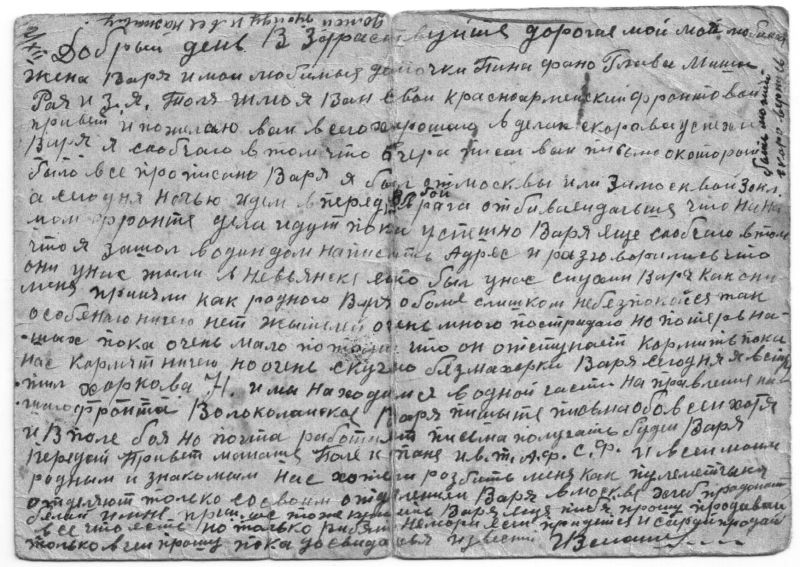 Добрый день В Здраствуйте дорогая мой моя любимая
жена Варя и мои любимые дочки Нина Глава Миша
Рая и З.Я. Толя шлю я Вам свой красноармейский фронтовой
привет и пожелаю вам всего хорошого в делах скорова успеха
Варя я сообчаю в том что вчера писал вам письмо о котором
было все прописано Варя я был от москвы или За москвой 30 кл.
а сегодня ночью идем в перед в бой врага отбиваем дальше что на на
шом фронте дела идут пока успешно Варя еще сообчаю в том
что я зашол в один дом написать Адрес и разговорились что
они у нас жили в Невьянске был у нас слушай Варя как они
меня приняли как родного Варя обо мне слишком небезпокойся так
особеного ничего нет жителей очень много пострадало но потерь на
ших пока очень мало потому что он отступает кормить пока
нас кормит ничего но очень скучно безмахорки Варя сегодня я встр
тил харкова Н. и мы находимся в одной части направления на
шего фронта Волоколамское Варя пишыте письма обо всем хотя
и В поле боя но почта работает письма получать будем Варя
передай Привет мамаше Поле и тане и в.т. А.Ф. С.Ф. и всем моим
родным и знакомым нас хотели розбить меня как пулеметчика
отделяют только со своим отделением Варя в москве хлеб продают
белай и мне пришлось тоже купить Варя еще тибя прошу продавай
все что есть но только рибят неморй если придется и продай
только в ем прошу пока досвидания
скоро